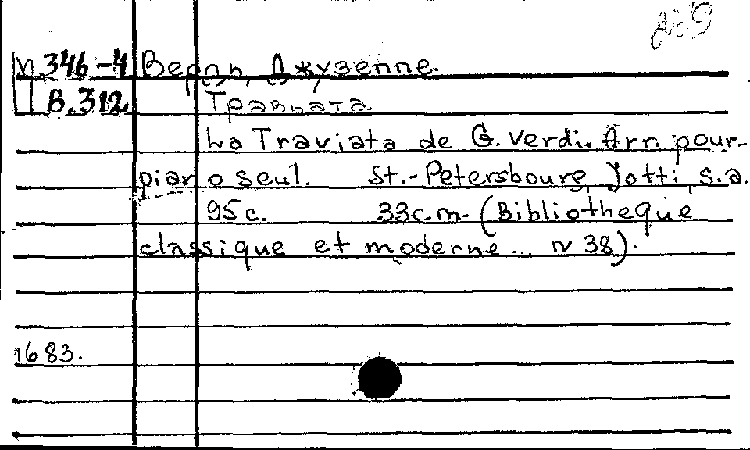 М.346-4 Верди, Джузеппе.
В.312 Травиата
La Traviata de G. Verdi. Arr. pour
piano seul. St.-Petersbourg, Jotti, s.a.
95 c. 33 c.m. (Bibliotheque
classique et moderne... N 38).
1683.